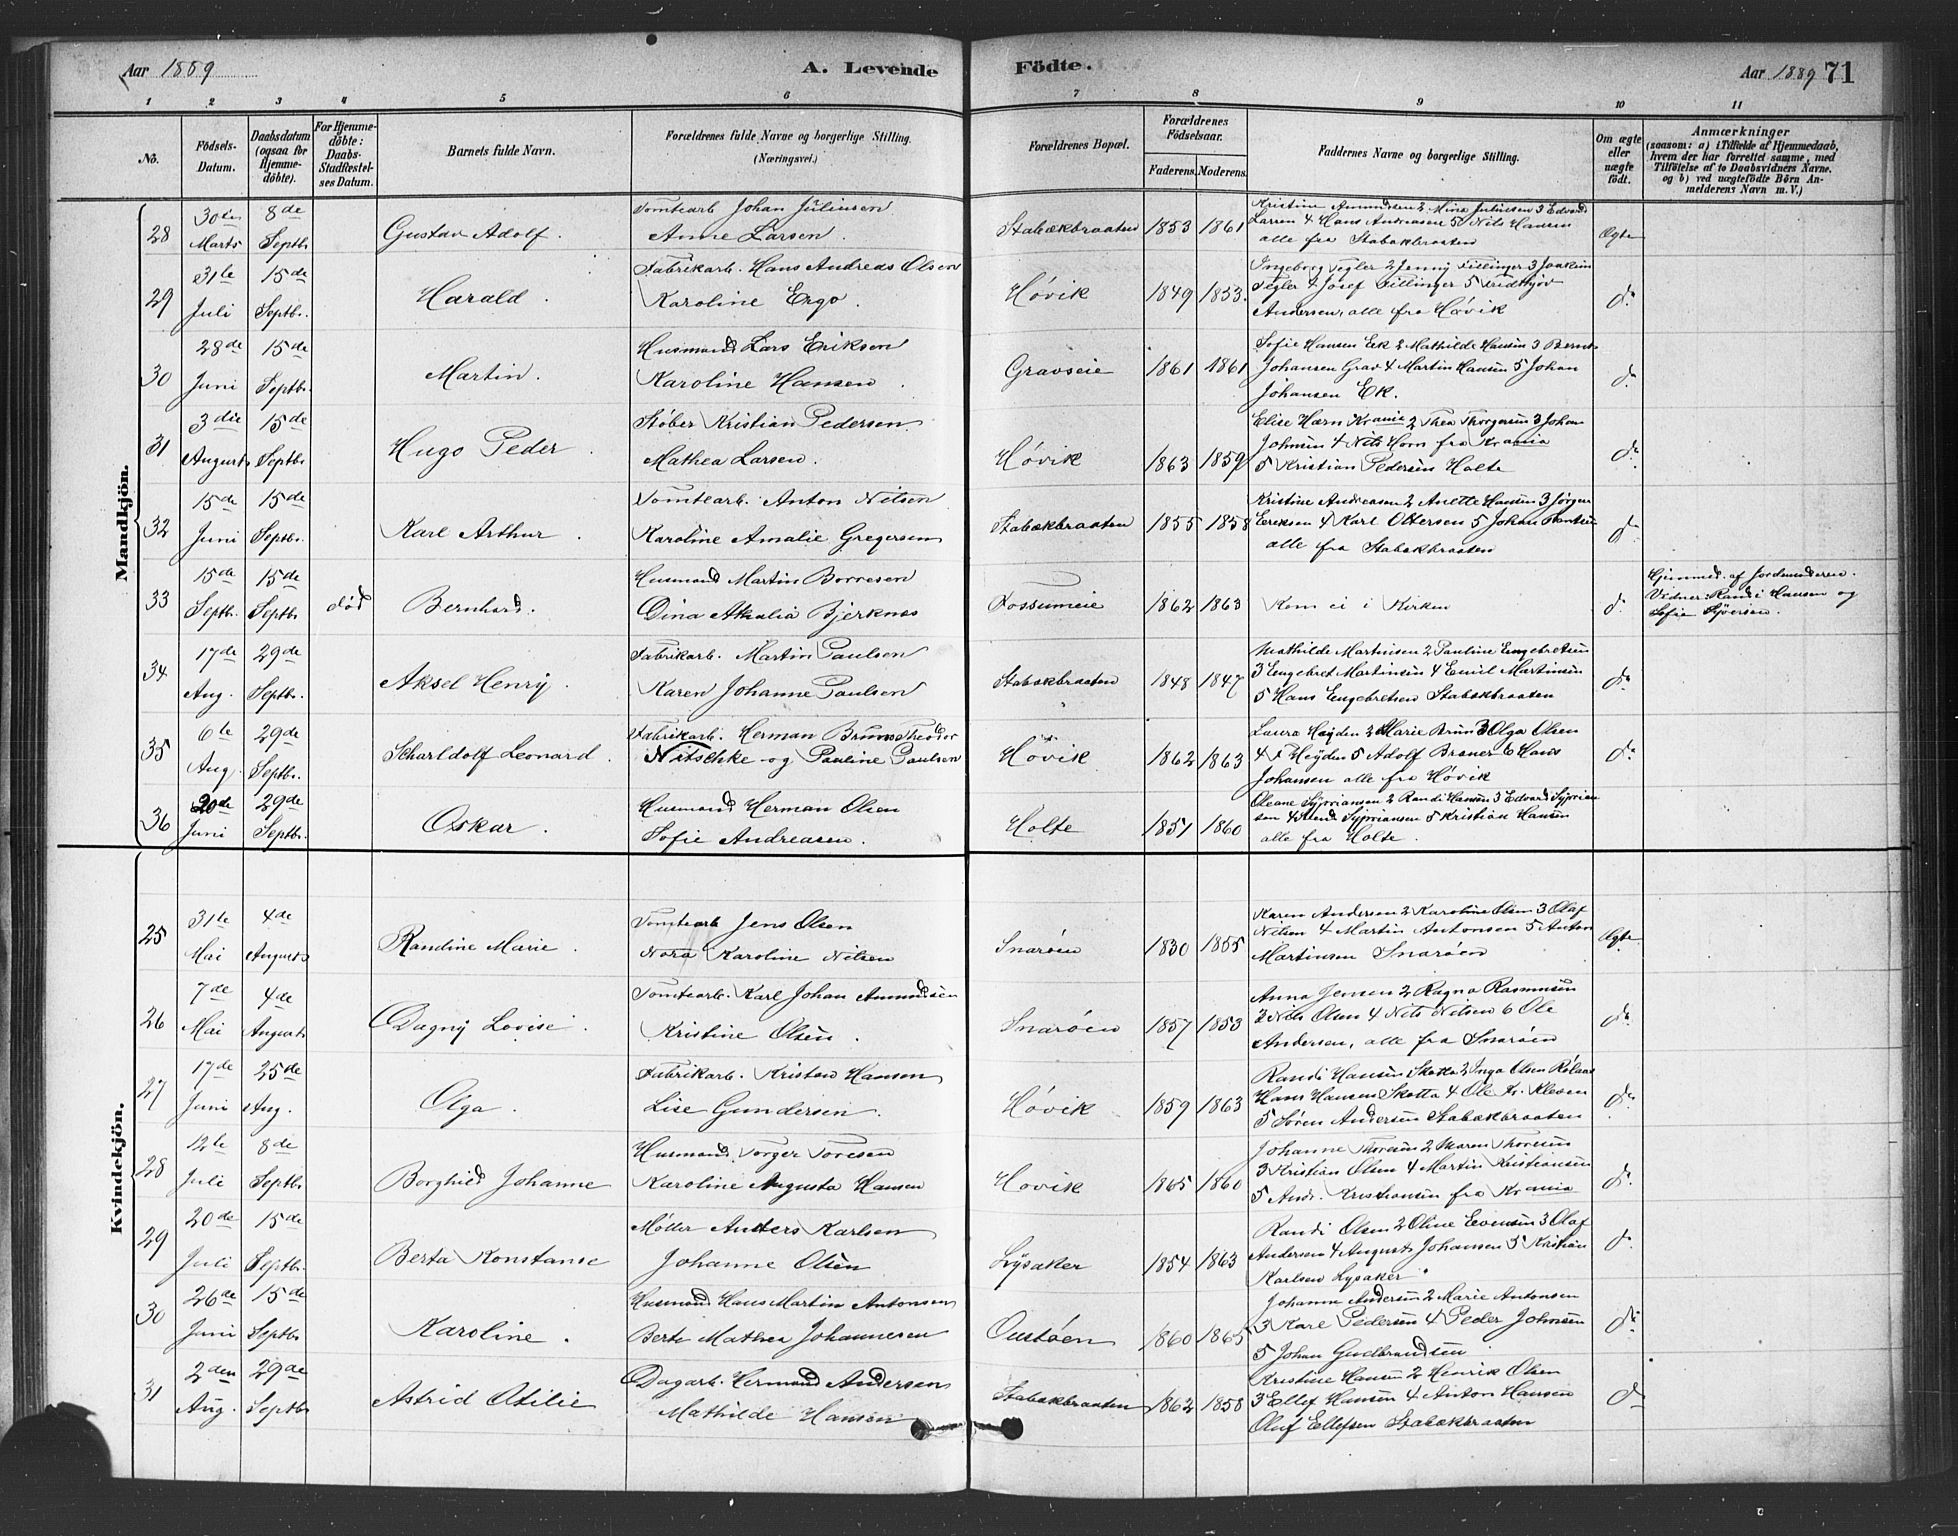 Aar 1889
A. Levende
Födte.
Aar 1889
71
1 2 3 4 5 6 7 8 9 10 11
No.
Födsels-Datum.
Daabsdatum (ogsaa for Hjemme-döbte).
For Hjemme-döbte: Daabs-Stadfæstel-ses Datum.
Barnets fulde Navn.
Forældrenes fulde Navne og borgerlige Stilling. (Næringsvei.)
Forældrenes Bopæl.
Forældrenes Födselsaar.
Faderens. Moderens.
Faddernes Navne og borgerlige Stilling.
Om ægte eller uægte födt.
Anmærkninger
(saasom: a) i Tilfælde af Hjemmedaab,
hvem der har forrettet samme, med
Tilföielse af to Daabsvidners Navne,
og b) ved uægtefödte Börn An-
melderens Navn m. V.)
Mandkjön.
28 30te Marts 8de Septbr. Gustav Adolf. Tomtearb Johan Juliusen
Anne Larsen. Stabækbraaten 1853 1861
Kristine Amundsen 2 Mina Juliusen 3 Edvard
Larsen 4 Hans Andreasen 5 Nils Hansen
alle fra Stabækbraaten Ægte
29 31te Juli 15de Septbr. Harald. Fabrikarb. Hans Andreas Olsen
Karoline Ergo. Høvik 1849 1853.
Ingeborg Tegler 2 Jenny Fillinger 3 Joakim
Tegler 4 Josef Fillinger 5 Fridthjov
Andersen, alle fra Høvik do
30 28de Juni 15de Septbr. Martin. Husmand Lars Eriksen
Karoline Hansen. Gravseie 1861 1861
Sofie Hansen Eek 2 Mathilde Hansen 3 Bernt
Johansen Grav 4 Martin Hansen 5 Johan
Johansen Ek. do
31 3die August 15de Septbr. Hugo Peder. Støber Kristian Pedersen
Mathea Larsen. Høvik 1863 1859
Elise Horn Krania 2 Thea Thorgersen 3 Johan
Johnsen 4 Nils Horn fra Krania
5 Kristian Pedersen Holte do
32 15de Juni 15de Septbr. Karl Arthur. Tomtearb. Anton Nilsen
Karoline Amalie Gregersen Stabækbraaten 1855 1858
Kristine Andreasen 2 Anette Hansen 3 Jørgen
Eriksen 4 Karl Ottersen 5 Johan
alle fra Stabækbraaten do
33 15de Septbr. 15de Septbr død Bernhard. Husmand Martin Borresen
Dina Athalia Bjerknes Fossumeie 1862 1863
Kom ei i Kirken do
Hjemmed. af Jordmoderen.
Vidner: Randi Hansen og
Sofie Syversen.
34 17de Aug. 29de Septbr. Aksel Henry. Fabrikarb. Martin Paulsen
Karen Johanne Paulsen Stabækbraaten 1848 1847
Mathilde Martinsen 2 Pauline Engebretsen
3 Engebret Martinsen 4 Emil Martinsen
5 Hans Engebretsen Stabækbraaten do
35 6te Aug. 29de Septbr. Scharldolf Leonard. Fabrikarb. Herman Bruno Theodor
Nitschke og Pauline Paulsen Høvik 1862 1863
Laura Heyden 2 Marie Brun 3 Olga Olsen
4 F Heyden 5 Adolf Braner 6 Hans
Johansen alle fra Høvik do
36 20de Juni 29de Septbr. Oskar. Husmand Herman Olsen
Sofie Andreasen. Holte 1851 1860
Oleane Sypriansen 2 Randi Hansen 3 Edvard Syprian
sen 4 Sypriansen 5 Kristian Hansen
alle fra Holte.
Kvindekjön.
25 31te Mai 4de August Randine Marie. Tomtearb Jens Olsen
Nora Karoline Nilsen Snarøen 1830 1855
Karen Andersen 2 Karoline Olsen 3 Olaf
Nilsen 4 Martin Antonsen 5 Anton
Martinsen Snarøen Ægte
26 7de Mai 4de August Dagny Lovise. Tomtearb. Karl Johan Amundsen
Kristine Olsen. Snarøen 1857 1853
Anna Jensen 2 Ragna Rasmusen
3 Nils Olsen 4 Nils Nilsen 6 Ole
Andersen, alle fra Snarøen do
27 17de Juni 25de Aug. Olga. Fabrikarb. Kristen Hansen
Lise Gundersen. Høvik 1859 1863
Randi Hansen Skotta 2 Inga Olsen
Hans Hansen Skotta 4 Ole Kr. Kleven
5 Søren Andersen Stabækbraaten do
28 12te Juli 8de Septbr. Borghild Johanne Husmand Torger Toresen
Karoline Augusta Hansen Høvik 1865 1860
Johanne Thoresen 2 Maren Thoresen
3 Kristian Olsen 4 Martin Kristiansen
5 Andr. Kristiansen fra Krania do
29 20de Juli 15de Septbr. Berta Konstanse Møller Anders Karlsen
Johanne Olsen Lysaker 1854 1863
Randi Olsen 2 Oline Evensen 3 Olaf
Andersen 4 August Johansen 5 Kristian
Karlsen Lysaker do
30 26de Juni 15de Septbr Karoline. Husmand Hans Martin Antonsen
Berte Mathea Johannesen Oustøen 1860 1865
Johanne Andersen 2 Marie Antonsen
3 Karl Pedersen 4 Peder Johnsen
5 Johan Gudbrandsen do
31 2den Aug. 29de Septbr Astrid Otilie Dagarb. Herman Andersen
Mathilde Hansen Stabækbraaten 1862 1858
Kristine Hansen 2 Henrik Olsen
3 Ellef Hansen 4 Anton Hansen
Oluf Ellefsen Stabækbraaten do